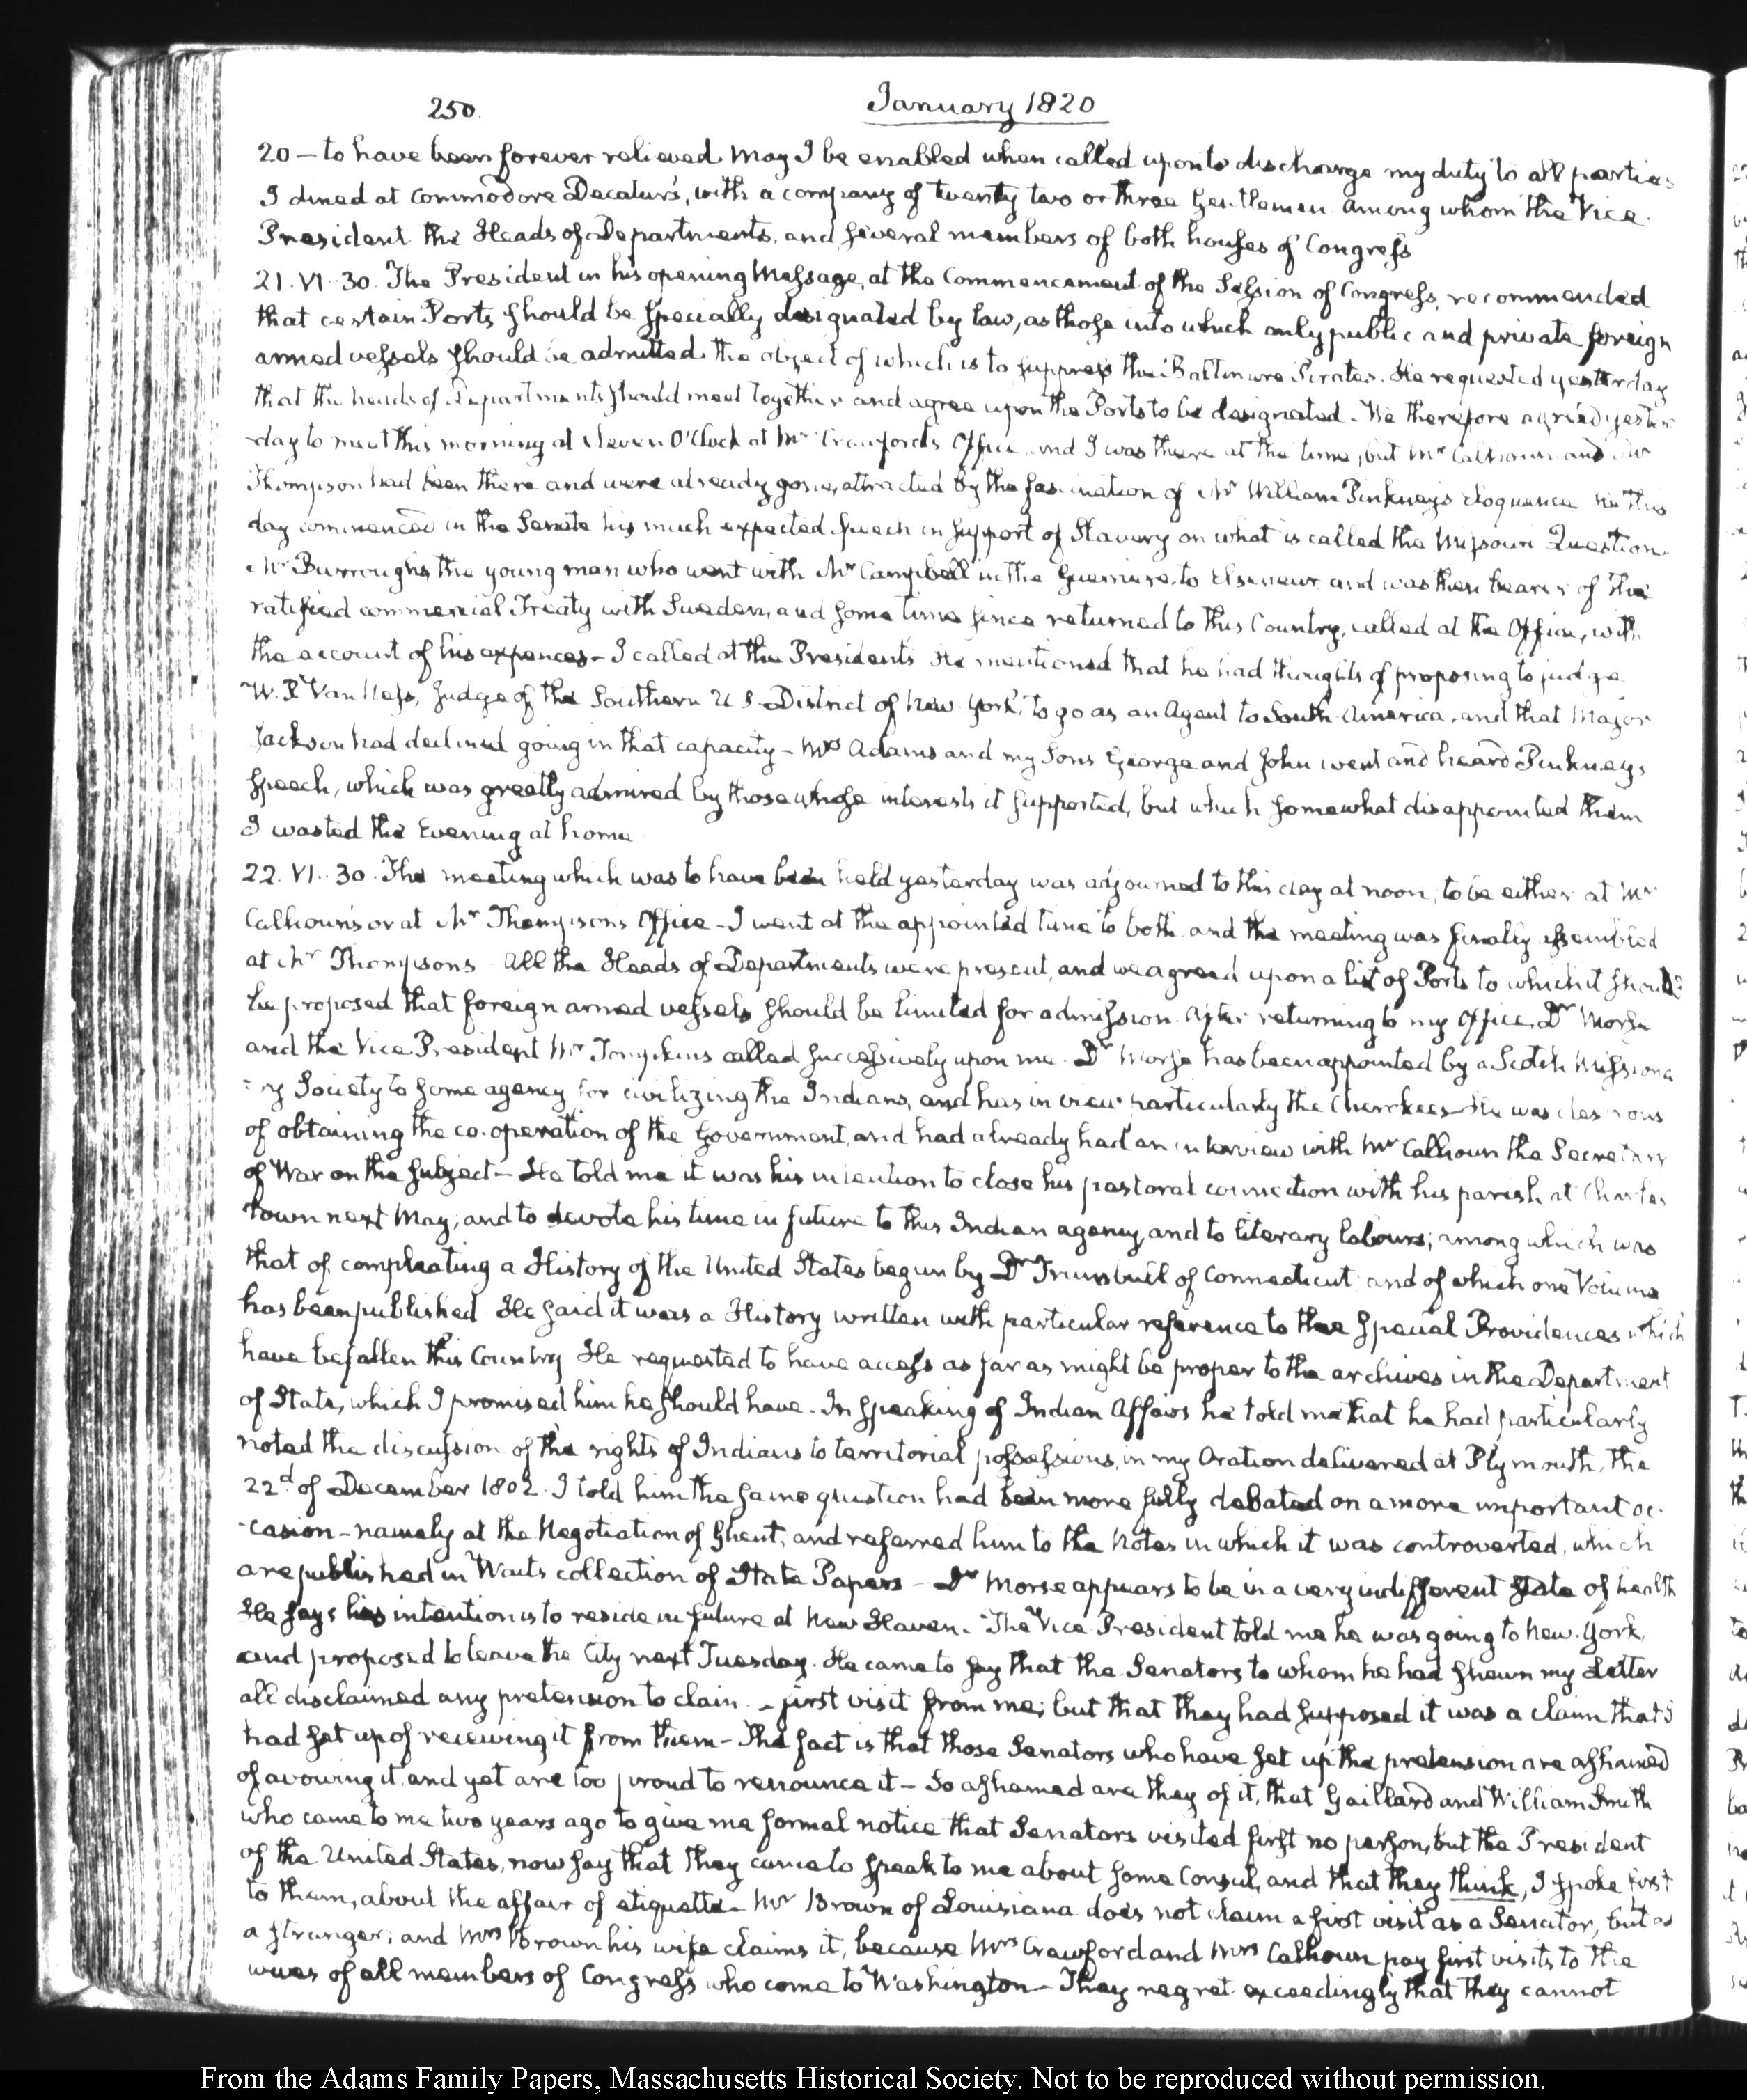 250.
January 1820
20 – to have been forever relieved. May I be enabled when called upon to discharge my duty to all parties
I dined at Commodore Decatur's, with a company of twenty two or three Gentlemen. Among whom the Vice.
President the Heads of Departments, and several members of both houses of Congress
21. VI. 30. The President in his opening Message, at the Commencement of the Session of Congress, recommended
that certain Ports should be specially designated by law, as those into which only public and private foreign
armed vessels should be admitted. the object of which is to suppress the Baltimore Pirates. He requested yesterday
that the heads of Departments should meet together and agree upon the Ports to be designated – We therefore agreed yester
day to meet this morning at eleven O'Clock at Mr Crawford's Office, and I was there at the time, but Mr Calhoun and Mr
Thompson had been there and were already gone, attracted by the fascination of Mr William Pinkney's eloquence who this
day commenced in the Senate his much expected speech in support of Slavery on what is called the Missouri Question –
Mr Burroughs the young man who went with Mr Campbell in the Guerriere to Elseneur and was then bearer of the
ratified commercial Treaty with Sweden, and some time since returned to this Country, called at the Office, with
the account of his expences – I called at the Presidents He mentioned that he had thoughts of proposing to judge
W. P. Van Ness, Judge of the Southern U S. District of New York, to go as an Agent to South America, and that Major
Jackson had declined going in that capacity – Mrs Adams and my Sons George and John went and heard Pinkney's
speech, which was greatly admired by those whose interests it supported, but which somewhat disappointed them
I wasted the Evening at home
22. VI. 30. The meeting which was to have been held yesterday was adjourned to this day at noon, to be either at Mr
Calhoun's or at Mr Thompson's Office – I went at the appointed time to both and the meeting was finally assembled
at Mr Thompsons – All the Heads of Departments were present, and we agreed upon a list of Ports to which it should
be proposed that foreign armed vessels should be limited for admission. After returning to my Office, Dr Morse
and the Vice President Mr Tompkins called successively upon me – Dr Morse has been appointed by a Scotch Missiona
ry Society to some agency for civilizing the Indians, and has in view particularly the Cherokees – He was desirous
of obtaining the co-operation of the Government, and had already had an interview with Mr Calhoun the Secretary
of War on the subject – He told me it was his intention to close his pastoral connection with his parish at Charles
town next May; and to devote his time in future to this Indian agency, and to literary labours; among which was
that of compleating a History of the United States begun by Dr Trumbull of Connecticut and of which one Volume
has been published He said it was a History written with particular reference to the special Providences which
have befallen this Country He requested to have access as far as might be proper to the archives in the Department
of State, which I promised him he should have – In speaking of Indian Affairs he told me that he had particularly
noted the discussion of the rights of Indians to territorial possessions, in my Oration delivered at Plymouth, the
22d of December 1802. I told him the same question had been more fully debated on a more important oc-
-casion – namely at the Negotiation of Ghent; and referred him to the Notes in which it was controverted, which
are published in Wait's collection of State Papers – Dr Morse appears to be in a very indifferent state of health
He says his intention is to reside in future at New Haven – The Vice President told me he was going to New York
and proposed to leave the City next Tuesday. He came to say that the Senators to whom he had shewn my Letter
all disclaimed any pretension to claim a first visit from me; but that they had supposed it was a claim that I
had set up of receiving it from them – The fact is that those Senators who have set up the pretension are ashamed
of avowing it, and yet are too proud to renounce it – So ashamed are they of it, that Gaillard and William Smith
who came to me two years ago to give me formal notice that Senators visited first no person, but the President
of the United States, now say that they came to speak to me about some Consul, and that they think, I spoke first
to them, about the affair of etiquette – Mr Brown of Louisiana does not claim a first visit as a Senator, but as
a stranger; and Mrs Brown his wife claims it, because Mrs Crawford and Mrs Calhoun pay first visits to the
wives of all members of Congress who come to Washington – They regret exceedingly that they cannot
From the Adams Family Papers, Massachusetts Historical Society. Not to be reproduced without permission.